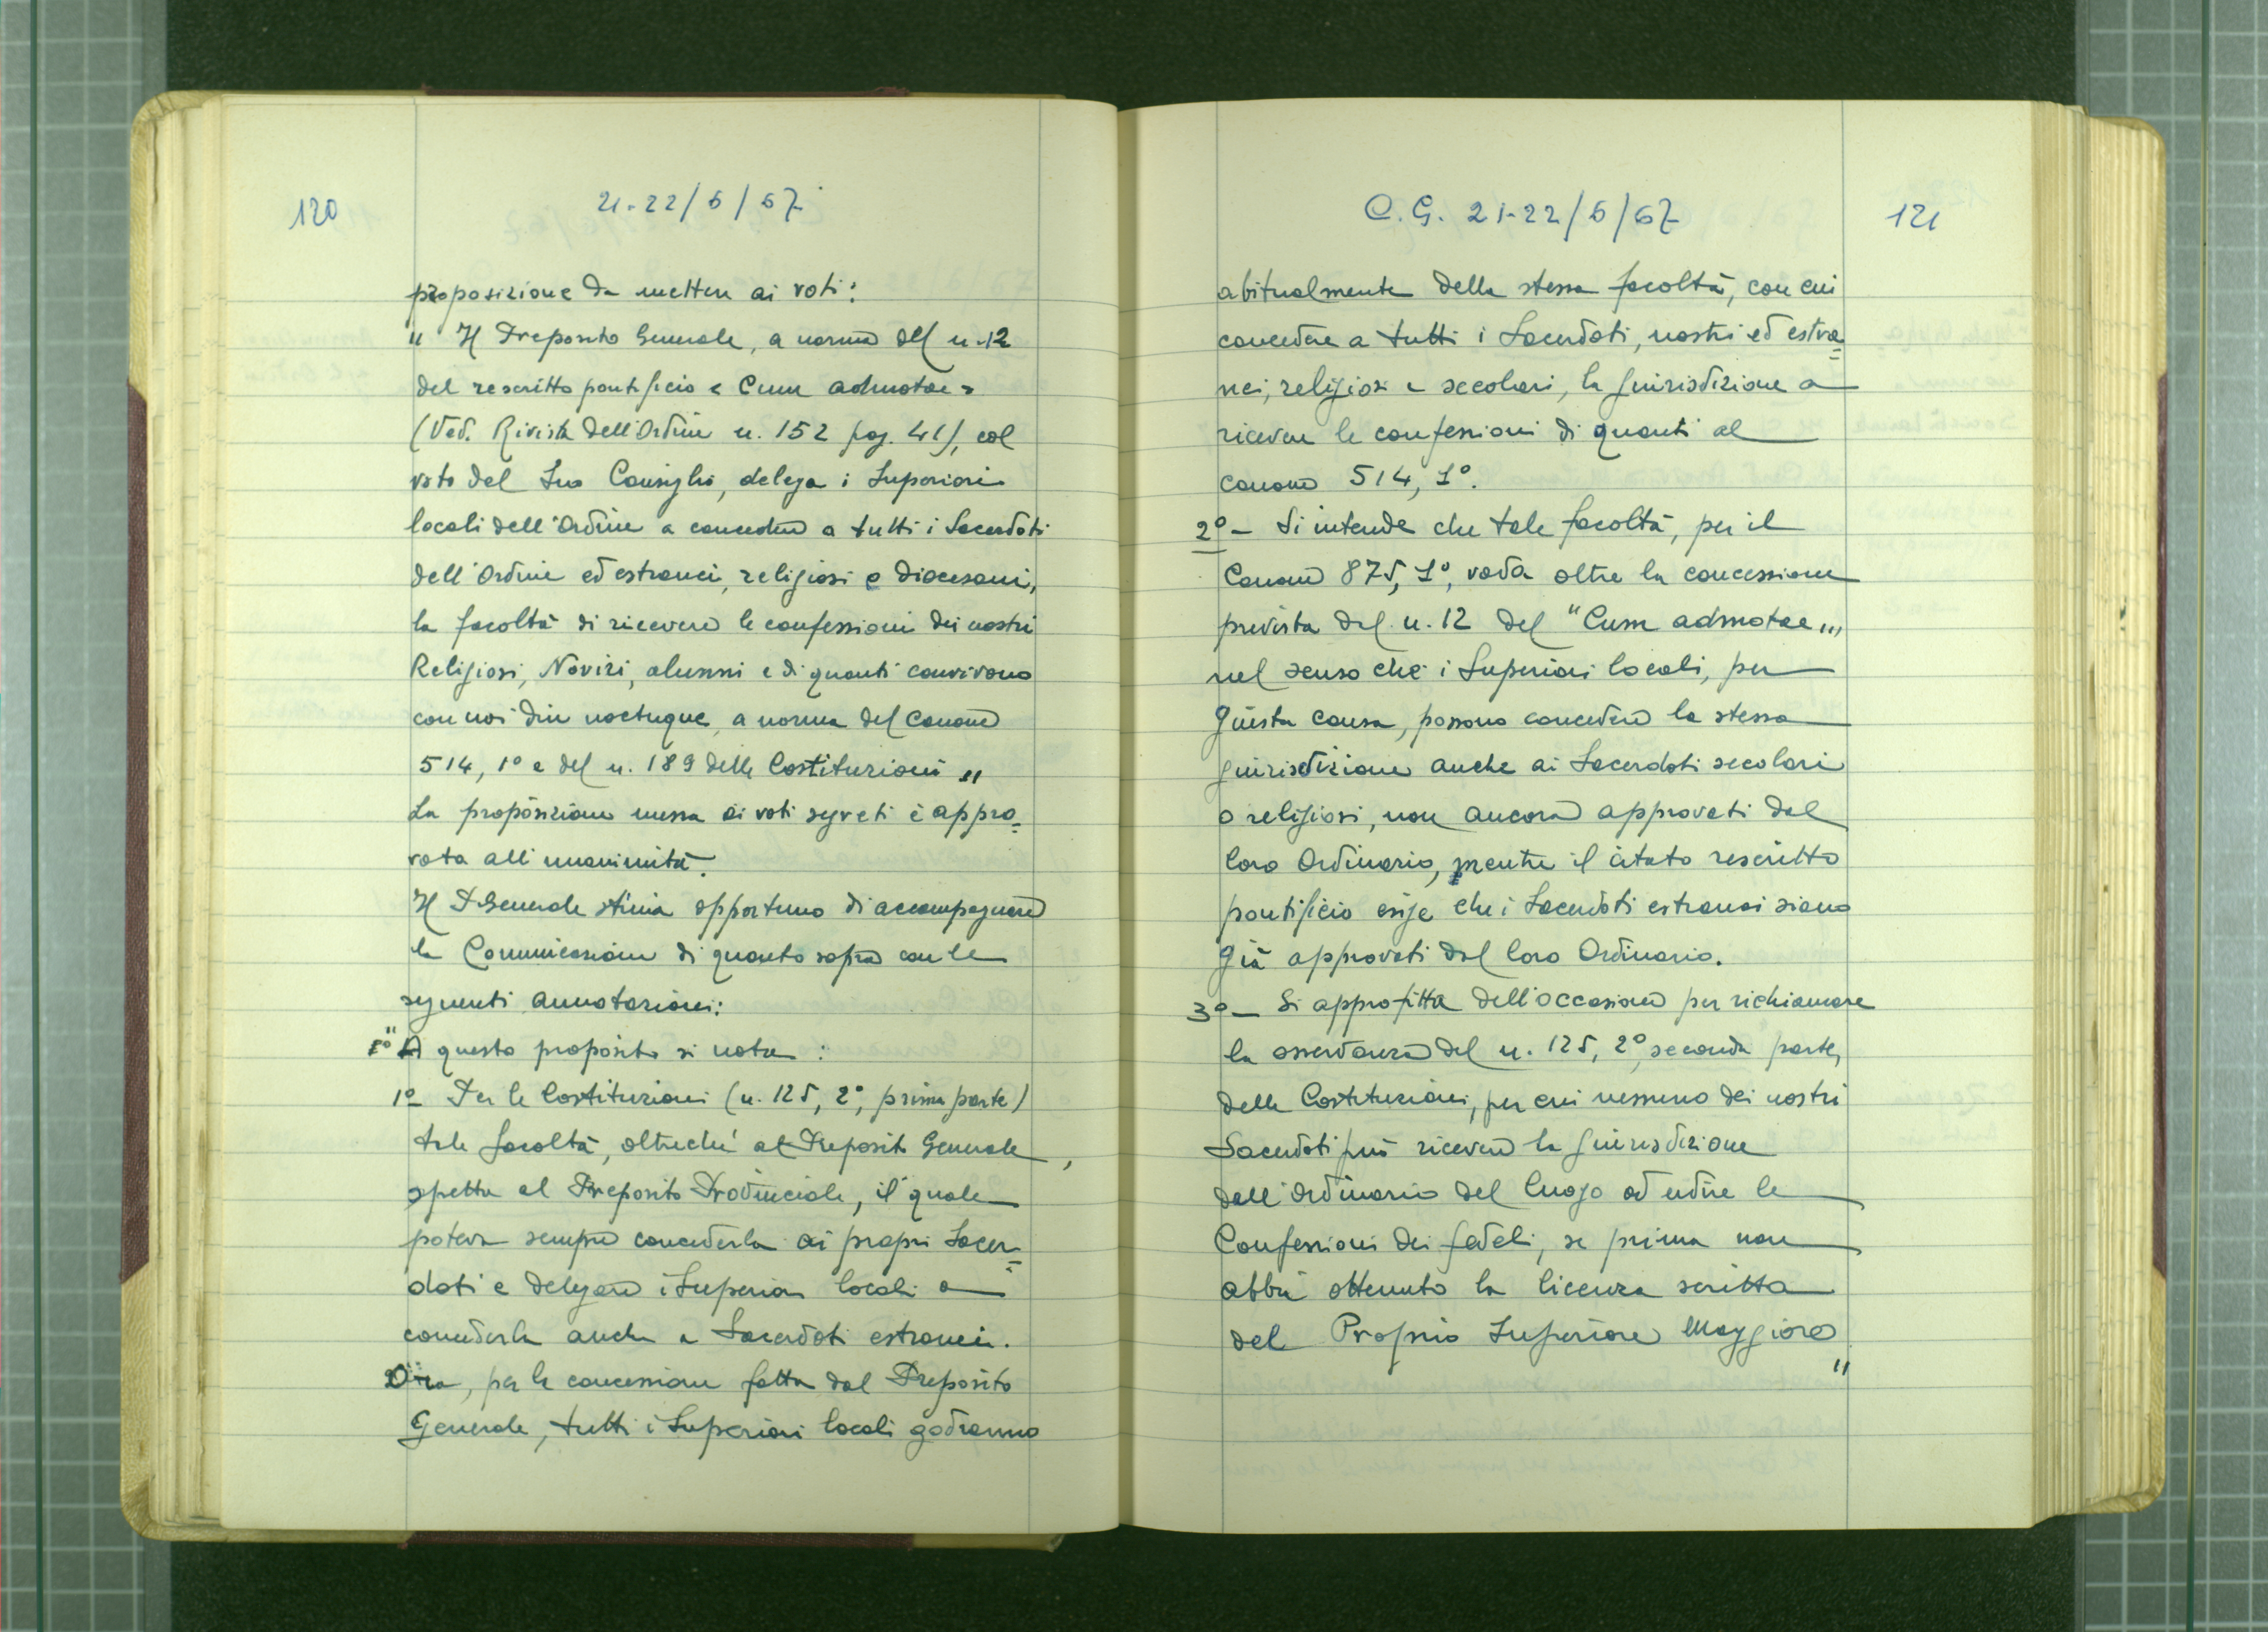 120
21-22/6/67
proposizione da mettere ai voti:
" Il Preposito Generale, a norma del n. 12
del rescritto pontificio « Cum admotae »
(Ved. Rivista dell'Ordine n. 152 pag. 41), col
voto del Suo Consiglio, delega i Superiori
locali dell'Ordine a concedere a tutti i Sacerdoti
dell'Ordine ed estranei, religiosi e diocesani,
la facoltà di ricevere le confessioni dei nostri
Religiosi, Novizi, alunni e di quanti convivono
con noi diu noctuque, a norma del Canone
514, 1° e del n. 189 delle Costituzioni "
La proposizione messa ai voti segreti è appro=
vata all'unanimità.
Il P. Generale stima opportuno di accompagnare
la Comunicazione di quanto sopra con le
seguenti annotazioni:
" A questo proposito si nota :
1° Per le Costituzioni (n. 125, 2°, prima parte)
tale facoltà, oltreché al Preposito Generale,
spetta al Preposito Provinciale, il quale
poteva sempre concederla ai propri Sacer=
doti e delegare i Superiori locali a
concederla anche a Sacerdoti estranei.
Ora, per la concessione fatta dal Preposito
Generale, tutti i Superiori locali godranno
C.G. 21-22/6/67
121
abitualmente della stessa facoltà, con cui
concedere a tutti i Sacerdoti, nostri ed estra=
nei, religiosi e secolari, la giurisdizione a
ricevere le confessioni di quanti al
canone 514, 1°.
2° - Si intende che tale facoltà, per il
Canone 875, 1°, vada oltre la concessione
prevista dal n. 12 del "Cum admotae",
nel senso che i Superiori locali, per
giusta causa, possono concedere la stessa
giurisdizione anche ai Sacerdoti secolari
o religiosi, non ancora approvati dal
loro Ordinario, mentre il citato rescritto
pontificio esige che i Sacerdoti estranei siano
già approvati dal loro Ordinario.
3° - Si approfitta dell'occasione per richiamare
la osservanza del n. 125, 2°, seconda parte,
delle Costituzioni, per cui nessuno dei nostri
Sacerdoti può ricevere la giurisdizione
dall'Ordinario del luogo ad udire le
Confessioni dei fedeli, se prima non
abbia ottenuto la licenza scritta
del Proprio Superiore Maggiore
"